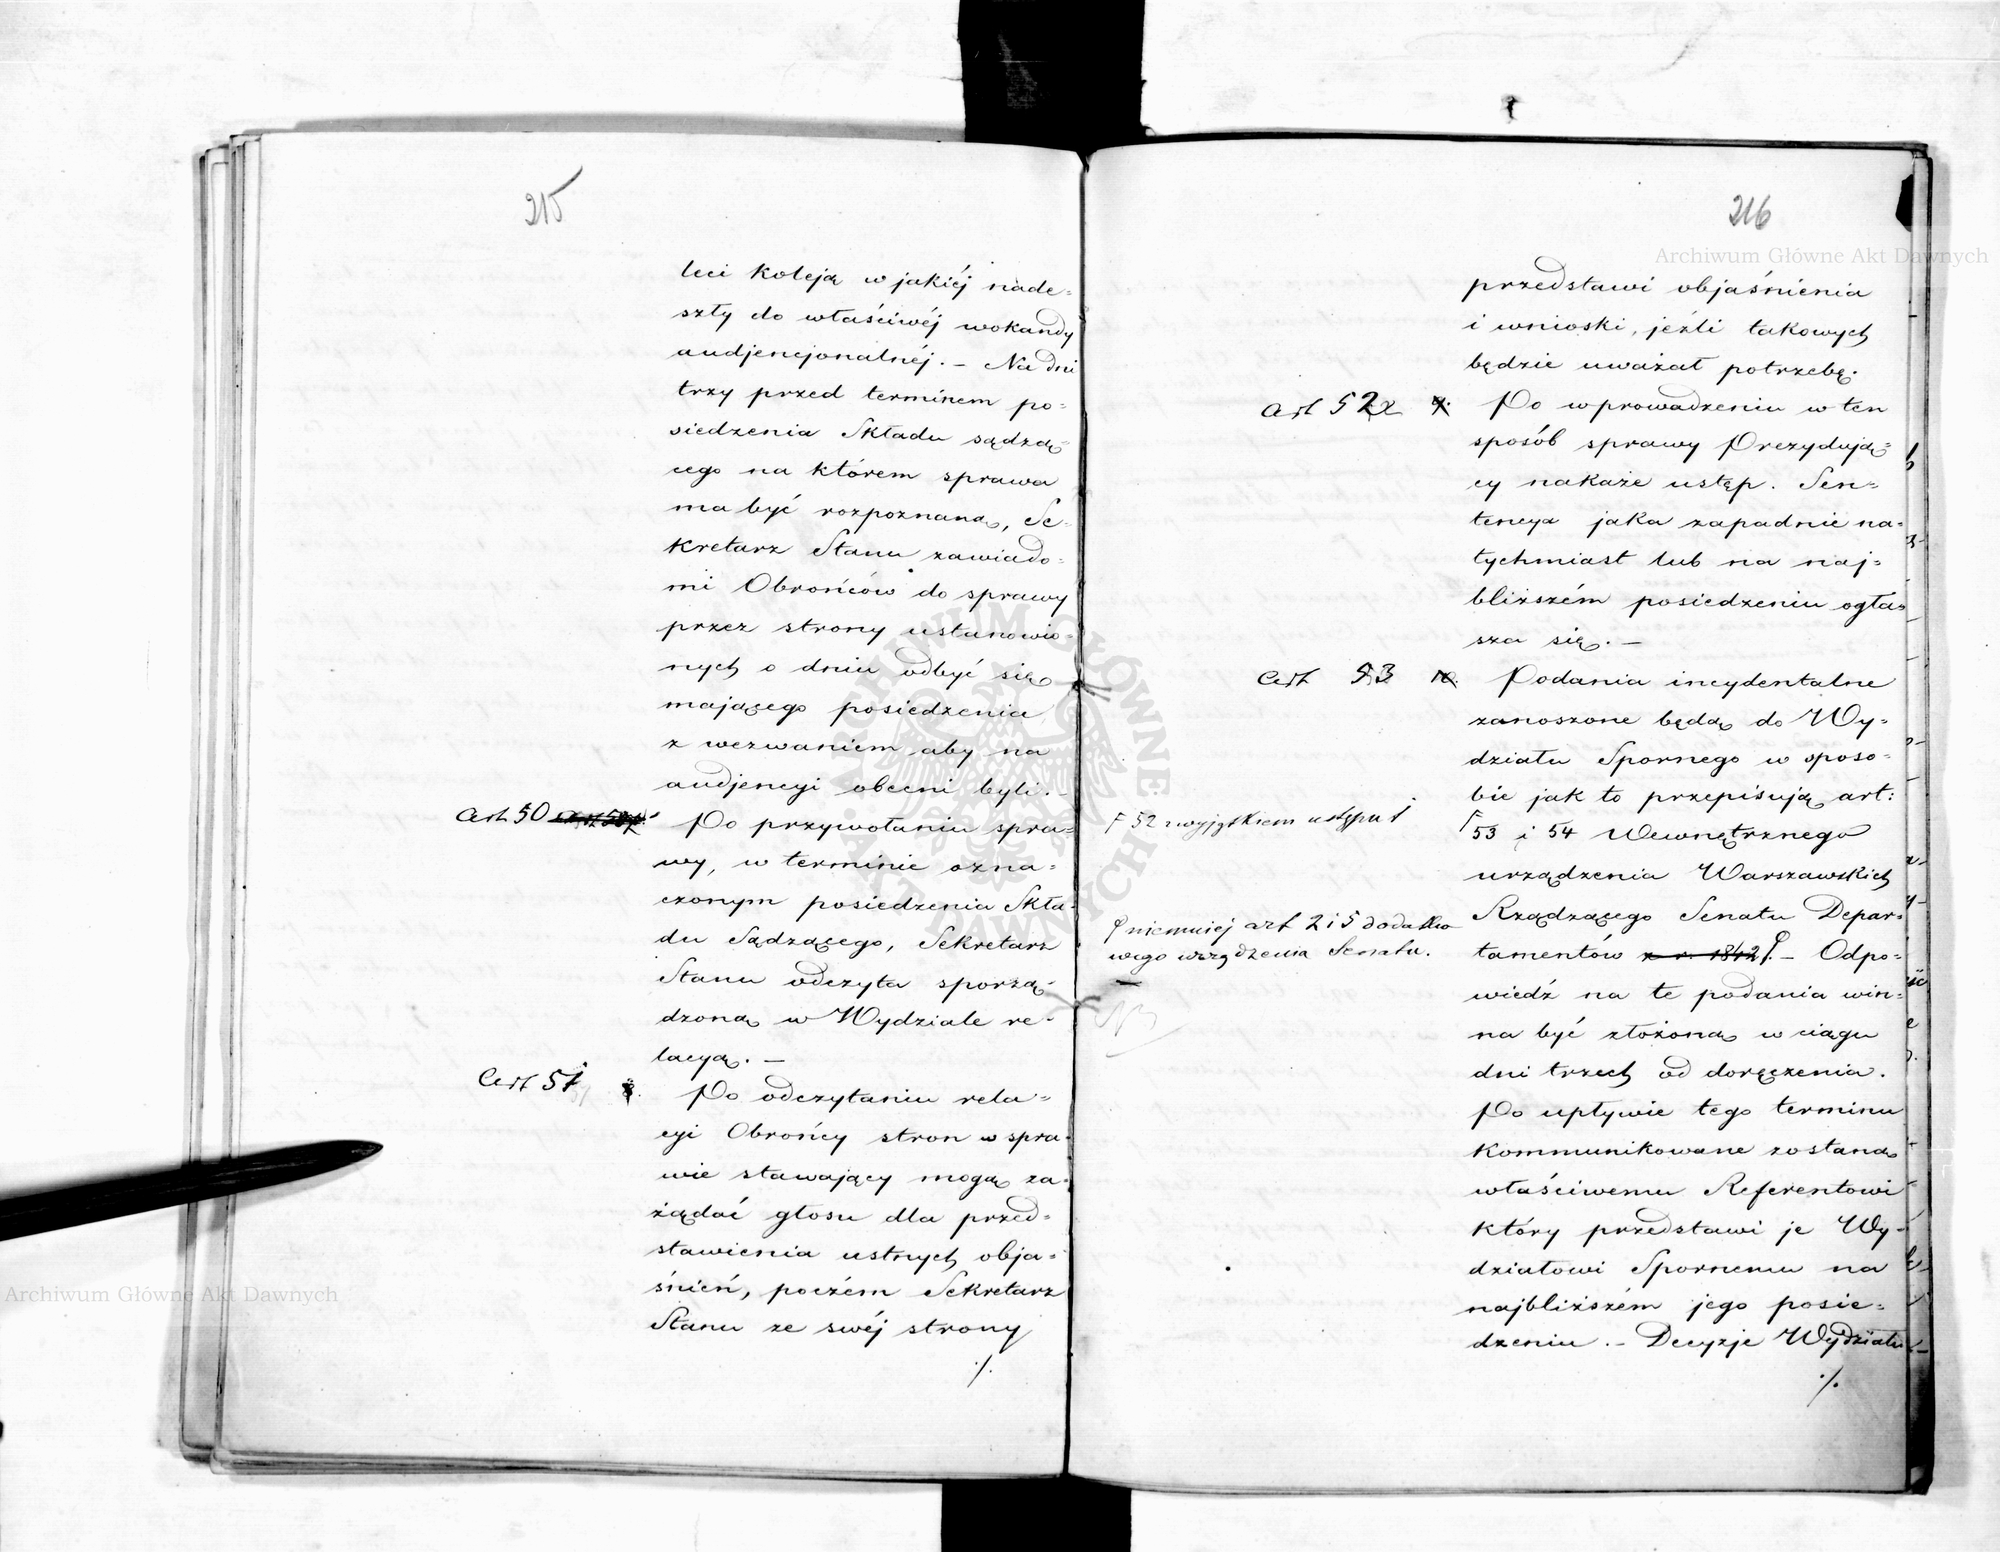 215
leci koleją w jakiéj nade=
szły do właściwéj wokandy
audjencjonalnéj. – Na dni
trzy przed terminem po=
siedzenia Składu sądzą=
cego na którem sprawa
ma być rozpoznaną, Se=
kretarz Stanu zawiado=
mi Obrońców do sprawy
przez strony ustanowio=
nych o dniu odbyć się
mającego posiedzenia
z wezwaniem aby na
audjencyi obecni byli. –
Art 50
Po przywołaniu spra=
wy, w terminie ozna=
czonym posiedzenia Skła=
du Sądzącego, Sekretarz
Stanu odczyta sporzą=
dzoną w Wydziale re=
lacyą. –
Art 51 8.
Po odczytaniu rela=
cyi Obrońcy stron w spra=
wie stawający mogą za=
żądać głosu dla przed=
stawienia ustnych obja=
śnień, poczém Sekretarz
Stanu ze swéj strony
./.
216
przedstawi objaśnienia
i wnioski, jeźli takowych
będzie uważał potrzebę.
Art 52 9. Po wprowadzeniu w ten
sposób sprawy Prezydują=
cy nakaże ustęp. Sen=
tencya jaka zapadnie na=
tychmiast lub na naj=
bliższém posiedzeniu ogła=
sza się. –
Art 53 10. Podania incydentalne
zanoszone będą do Wy=
działu Spornego w sposo=
bie jak to przepisują art:
53 i 54 Wewnętrznego
urządzenia Warszawskich
Rządzącego Senatu Depar=
tamentów z r. 1842 – Odpo=
wiedź na te podania win=
na być złożoną w ciągu
dni trzech od doręczenia.
Po upływie tego terminu
kommunikowane zostaną
właściwemu Referentowi
który przedstawi je Wy=
działowi Spornemu na
najbliższém jego posie=
dzeniu. – Decyzje Wydziału
./.
52 z wyjątkiem ustępu 1
niemniej art 2 i 5 dodatko
wego urządzenia Senatu.
Archiwum Główne Akt Dawnych
Archiwum Główne Akt Dawnych
ARCHIWUM GŁÓWNE AKT DAWNYCH